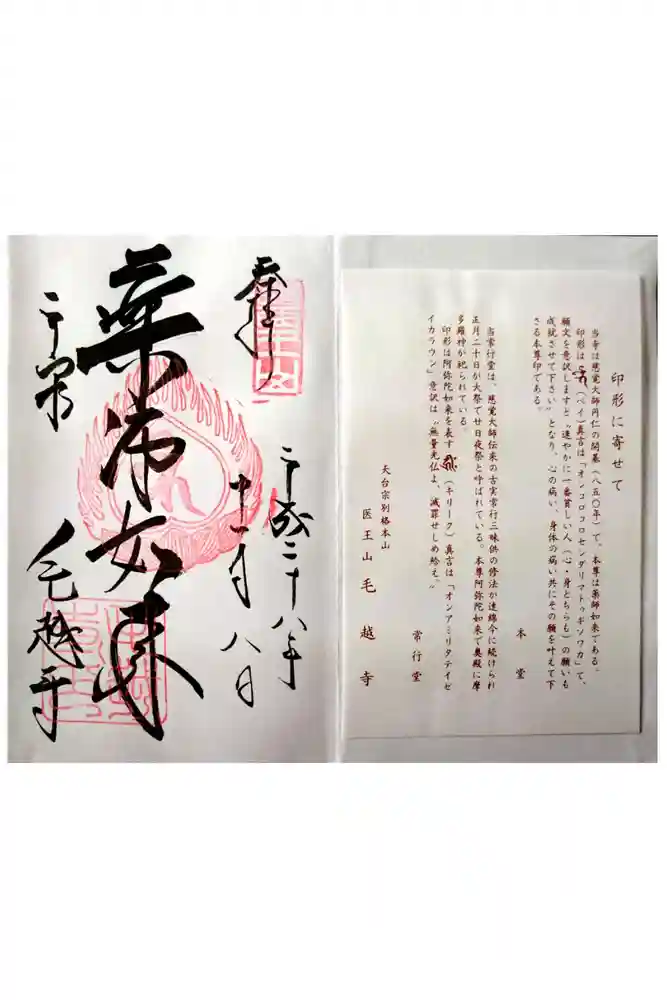 奉拝
平成二十八年
十一月八日
薬师如来
平泉
毛越寺
印形に寄せて
当寺は慈覚大師円仁の開基(八五〇年)で、本尊は薬師如来である。
印形は(ベイ)真言は「オンコロコロセンダリマトゥギソワカ」で、
願文を意訳しますと"速やかに一番貧しい人(心・身どちらも)の願いも
成就させて下さい"となり、心の病い、身体の病い共にその願を叶えて下
さる本尊印である。
本堂
当常行堂は、慈覚大師伝来の古実常行三昧供の修法が連綿今に続けられ
正月二十日が大祭で廿日夜祭と呼ばれている。本尊阿弥陀如来で奥殿に摩
多羅神が祀られている。
印形は阿弥陀如来を表す(キリーク)真言は「オンアミリタテイゼ
イカラウン」意訳は"無量光仏よ、滅罪せしめ給え。"
常行堂
天台宗別格本山
医王山毛越寺